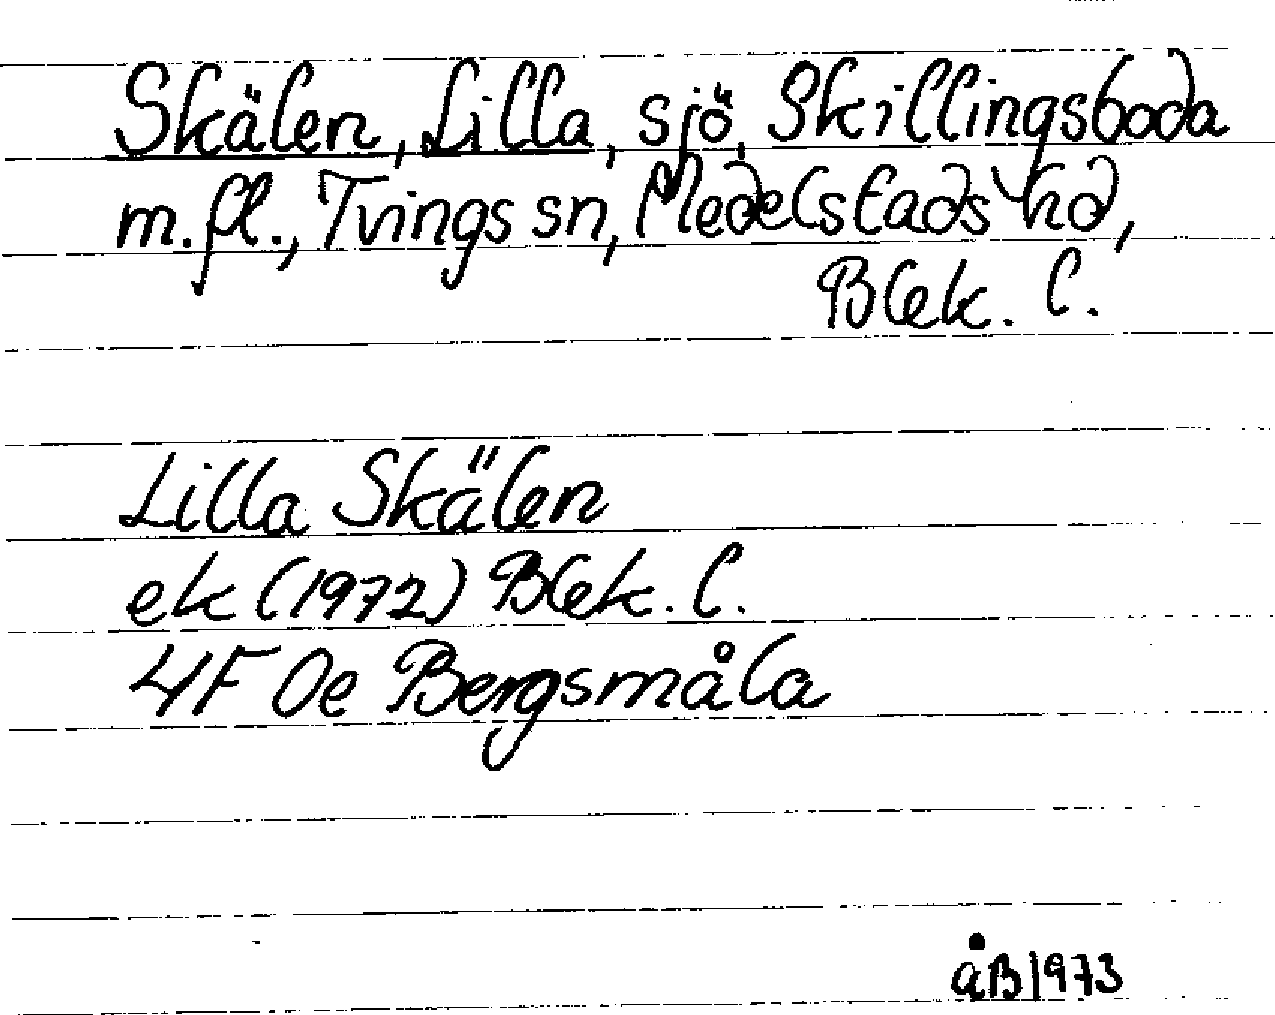 Skälen, Lilla, sjö, Skillingsboda
m.fl., Tvings sn, Medelstads hd,
Blek. l.
Lilla Skälen
ek (1972) Blek. l.
4F 0e Bergsmåla
åB 1973